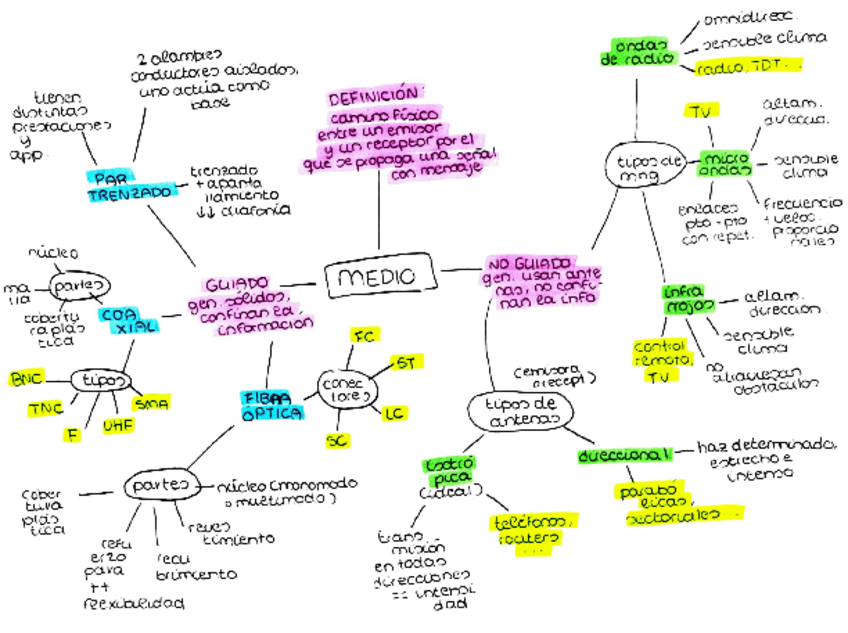 MEDIO
DEFINICIÓN:
camino físico
entre un emisor
y un receptor por el
que se propaga una señal
con mensaje
GUIADO
gen. sólidos,
confinan la
información
PAR
TRENZADO
tienen
distintas
prestaciones
y
app.
2 alambres
conductores aislados,
uno actúa como
base
trenzado
+ apanta
llamiento
↓↓ diafonía
COA
XIAL
partes
núcleo
ma
lla
cobertu
ra plás
tica
tipos
BNC
TNC
F
UHF
SMA
FIBRA
ÓPTICA
conec
tores
FC
ST
LC
SC
partes
núcleo (monomodo
o multimodo)
reves
timiento
recu
brimiento
refu
erzo
para
++
flexibilidad
cober
tura
plás
tica
NO GUIADO
gen. usan ante
nas, no confi
nan la info
tipos de
mng
ondas
de radio
omnidirecc.
sensible clima
radio, TDT...
micro
ondas
TV
altam.
direccio.
sensible
clima
frecuencia
+ veloc.
proporcio
nales
enlaces
pto-pto
con repet.
infra
rrojos
altam.
direccion.
sensible
clima
no
atraviesan
obstáculos
control
remoto,
TV
tipos de
antenas
(emisora
o recept)
isotró
pica
(ideal)
trans
misión
en todas
direcciones
== intensi
dad
teléfonos,
routers
...
direccional
haz determinado,
estrecho e
intenso
parabó
licas,
sectoriales...